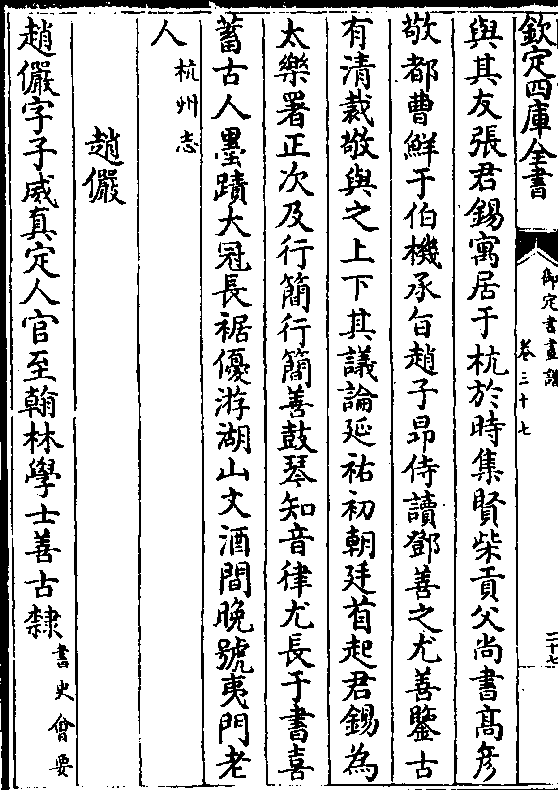 欽定四庫全書
御定書畫譜
卷三十七
二十七
與其友張君錫寓居于杭於時集賢柴貢父尚書髙彦
敬都曹鮮于伯機承旨趙子昻侍讀鄧善之尤善鑒古
有清裁敬與之上下其議論延祐初朝廷首起君錫為
太樂署正次及行簡行簡善鼓琴知音律尤長于書喜
蓄古人墨蹟大冠長裾優游湖山文酒間晩號夷門老
人杭州志
趙儼
趙儼字子威真定人官至翰林學士善古隸書史會要